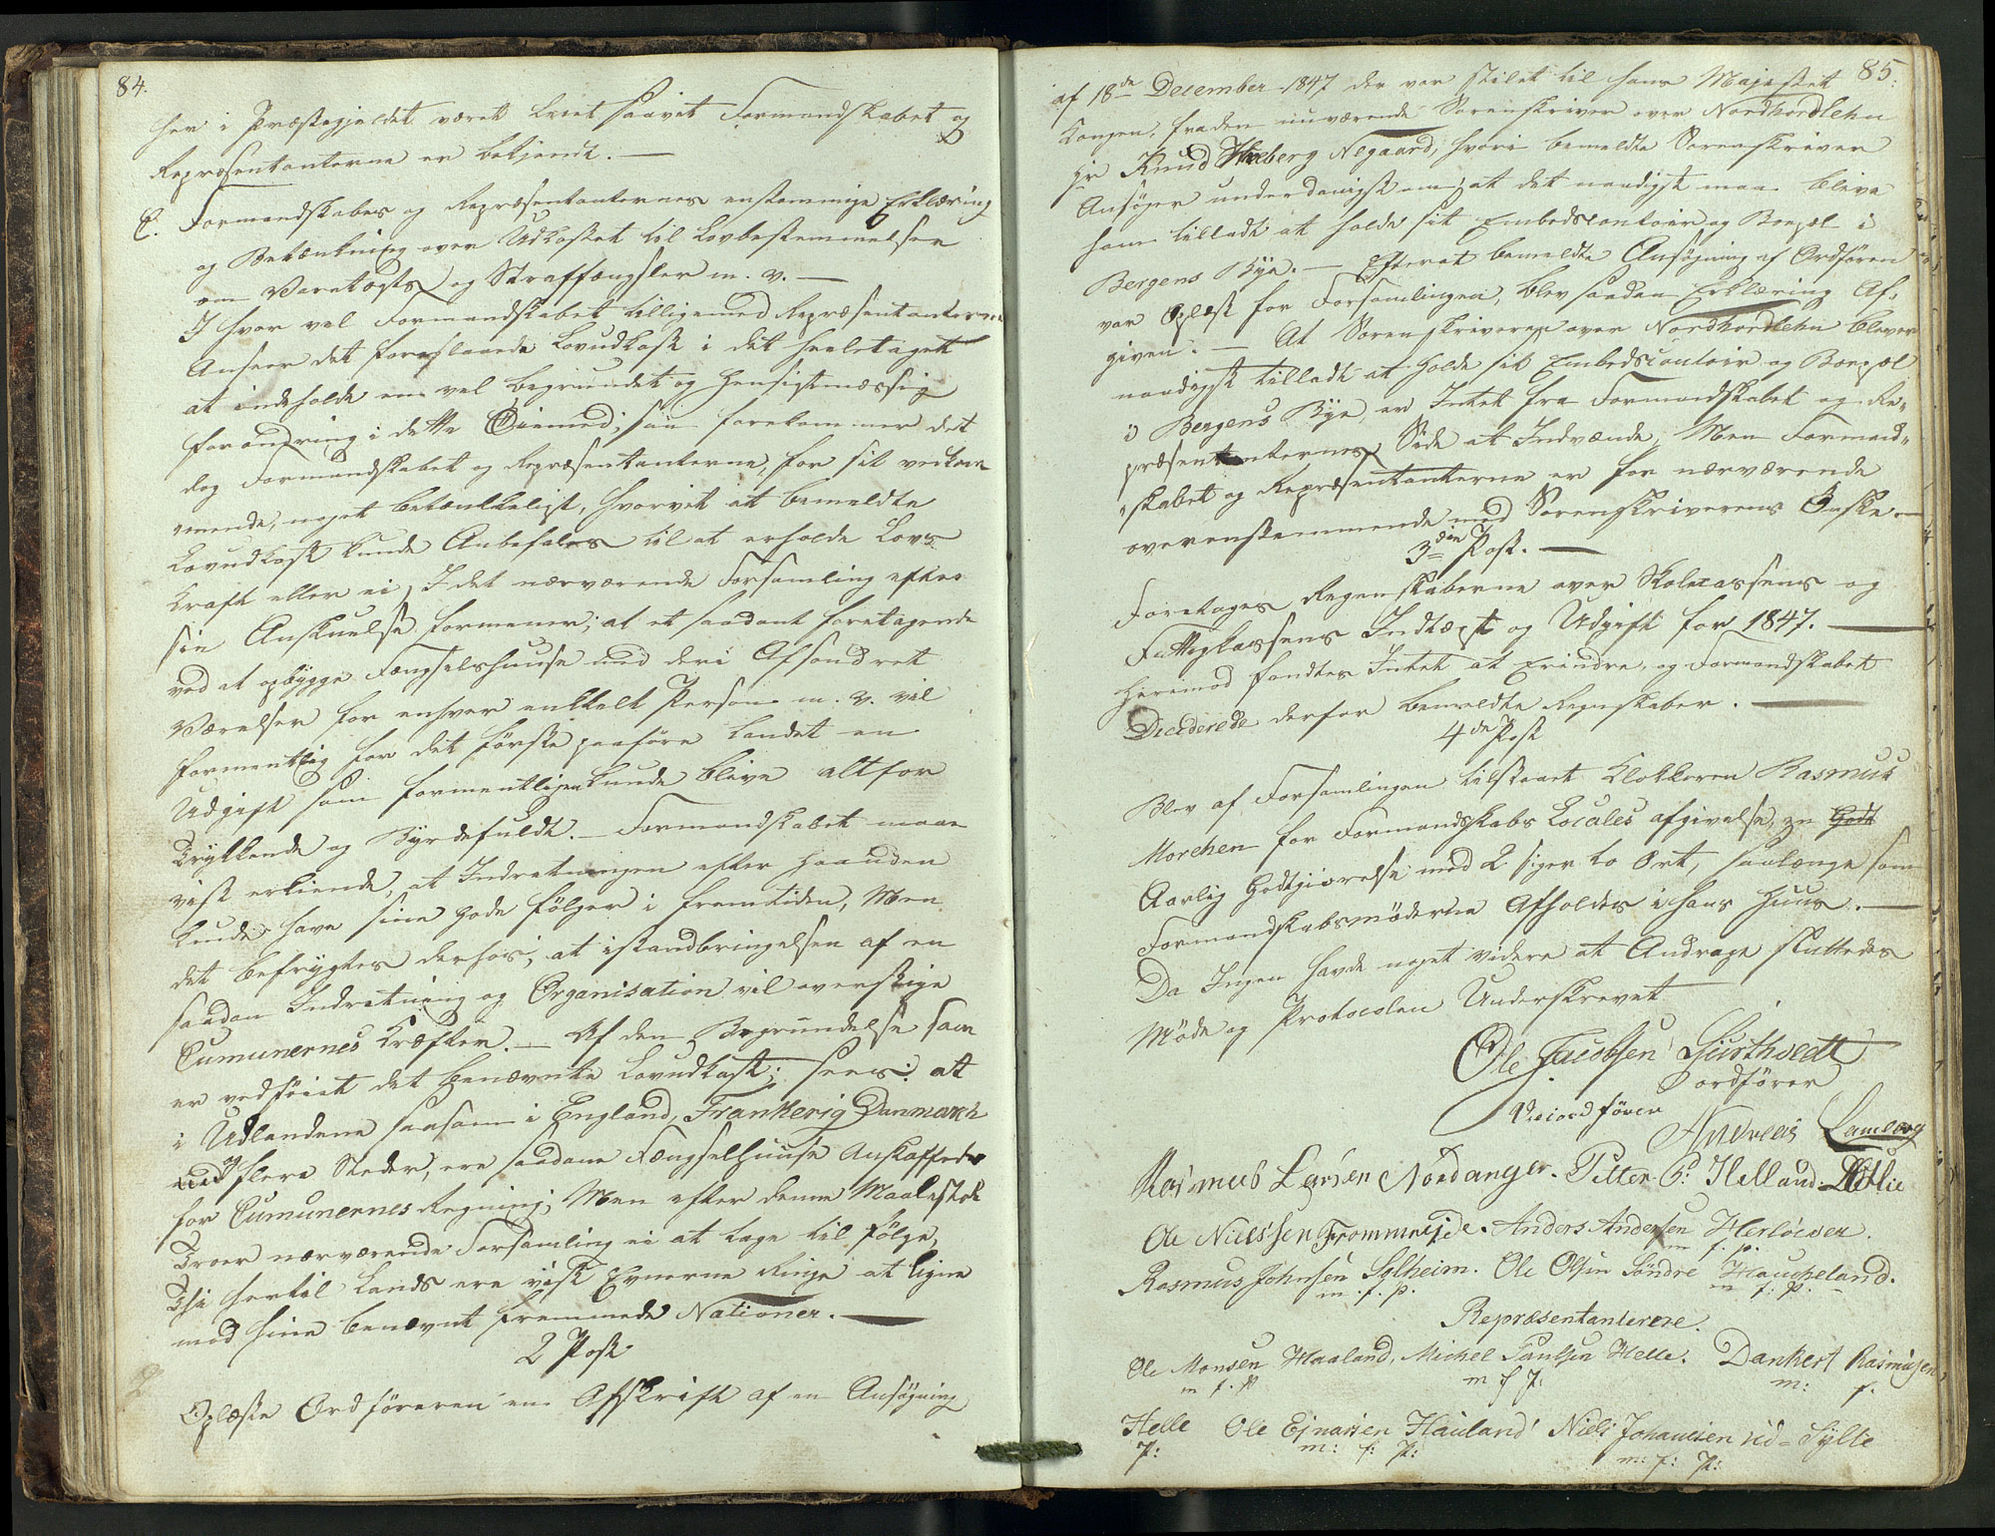 84.
her i Præstegjeldet været læst saavit Formandskabet og
Repræsentanterne er bekjendt. —
C. Formandskabes og Repræsentanternes enstemmige Erklæring
og Betænkning over Udkastet til Lovbestemmelser
om Varetægts og Straffængsler m. v. —
I hvor vel Formandskabet tilligemed Repræsentanterne
Anseer det foreslaaede Lovudkast i det heeletaget
at indeholde en vel begrundet og Hensigtmæssig
forandring i dette Øiemed; saa forekommer det
dog Formandskabet og Repræsentanterne, for sit vedkom
mende, noget betænkeligt, hvorvit at bemeldte
Lovudkast kunde Anbefales til at erholde Lovs
Kraft eller ei, I det nærværende Forsamling efter
sin Anskuelse formener; at et saadant foretagende
ved at opbygge Fængselshuuse med deri Afsondret
Værelser for enhver enkelt Person m. v. vil
formentlig for det første paaføre Landet en
Udgift som formentligen kunde blive altfor
Trykkende og Byrdefuldt. — Formandskabet maae
vist erkiende, at Indretningen efter Haanden
kunde have sine gode følger i fremtiden, Men
det befrygtes derhos, at istandbringelsen af en
saadan Indretning og Organisation vil overstige
Cumunernes Kræfter. — Af den Begrundelse som
er vedføiet det benævnte Lovudkast; sees: at
i Udlandene saasom i England, Frankerig Danmarck
og flere Steder, ere saadane Fængselhuuse Anskaffede
for Cumunernes Regning; Men efter denne Maalestok
Troer nærværende Forsamling ei at tage til følge,
Thi hertil Lands ere vist Evnerne Ringe at ligne
mod hine benævnt fremmede Nationer. —
2 Post
Oplæste Ordføreren en Afskrift af en Ansøgning
85.
af 18de December 1847 der var stilet til hans Majestæt
Kongen, fra den nuværende Sorenskriver over Nordhordlehn
Hr Knud Negaard, hvori bemeldte Sorenskriver
Ansøger underdanigst om, at det naadigst maa blive
ham tilladt at holde sit Embedscontoir og Bopæl i
Bergens Bye. — Efterat bemeldte Ansøgning af Ordføren
var Oplæst for Forsamlingen, blev saadan Erklæring Af-
given: — At Sorenskriveren over Nordhordlehn bliver
naadigst tilladt at holde sit Embedscontoir og Boepæl
i Bergens Bye, er Intet fra Formandskabet og Re-
præsentanternes Side at Indvænde, Men Formand-
skabet og Repræsentanterne er for nærværende
overenstemmende med Sorenskriverens Ønske. —
3die Post. —
Foretoges Regnskaberne over Skolecassens og
Fattigkassens Indtægt og Udgift for 1847. —
Herimod fandtes Intet at Erindre, og Formandskabet
Deciderede derfor bemeldte Regnskaber. —
4de Post
Blev af Forsamlingen tilstaaet Klokkeren Rasmus
Morchen for Formandskabs Locales afgivelse, en Godt
Aarlig Godtgiørelse med 2 siger to Ort, saalænge som
Formandskabsmøderne Afholdes i hans Huus. —
Da Ingen havde noget videre at Andrage sluttedes
Møde og Protocolen Underskrevet
Ole Jacobsen Giærthvedt
ordfører
Viceordfører
Andreas Lamberg
Rasmus Larsen Nordanger. Petter O: Helland.
Ole Nielssen Anders Andersen
m. f. p.
Rasmus Johnsen Sylheim. Ole Olsen Søndre Haucheland.
m. f. p. m. f. p.
Repræsentanterere.
Ole Monsen Haaland, Michel Paulsen Helle. Dankert Rasmusen
m. f. p m f p: m: f.
Helle Ole Ejnarsen Hauland Niels Johanesen
p: m: f: p: m: f: p: